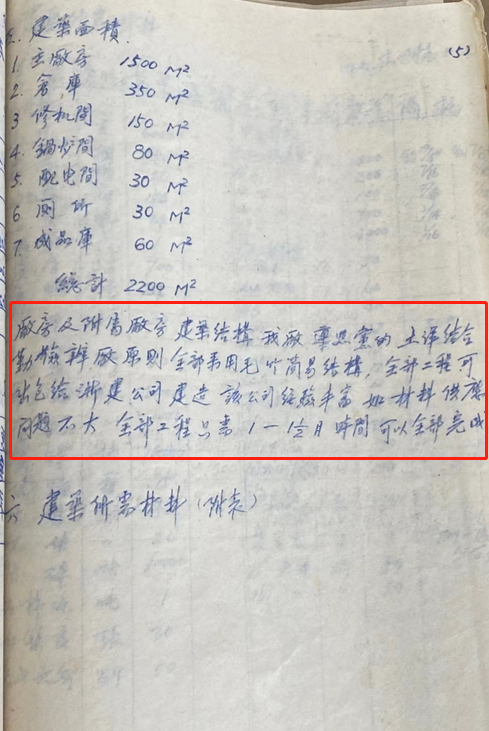 五. 建築面積.
(5)
1. 主廠房 1500 M²
2. 倉庫 350 M²
3 修机間 150 M²
4. 鍋炉間 80 M²
5. 配电間 30 M²
6 厕所 30 M²
7. 成品庫 60 M²
總計 2200 M²
廠房及附属廠房建築结構 我廠 党的土洋结合
勤儉辦廠原則 全部采用毛竹简易结構, 全部工程可
出包给浙建公司建造 該公司经驗丰富 如材料供應
問題不大 全部工程只需 1—1½月時間可以全部完成
六 建築所需材料 (附表)